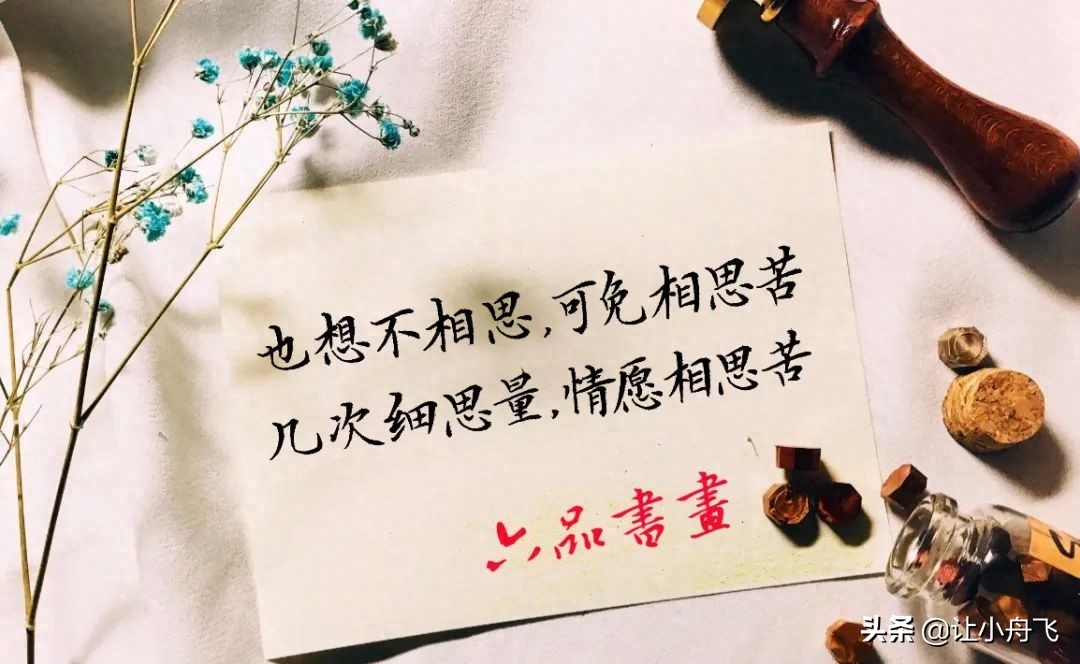 也想不相思,可免相思苦
几次细思量,情愿相思苦
六品書畫
头条 @让小舟飞